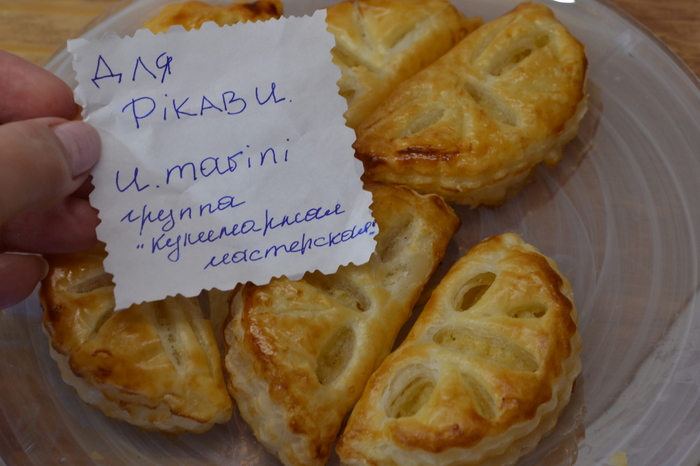 для
Рікаві.
И. maгіпі
группа
"кулинарная
мастерская"